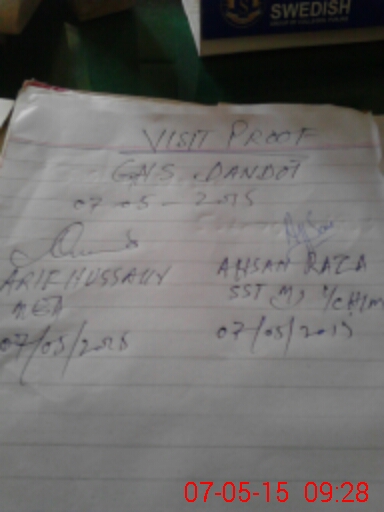 SWEDISH
VISIT PROOF
GHS DANDOT
07-05-2015
ARIF HUSSAIN
AHSAN RAZA
MEA
SST (M) I/C H/M
07/05/2015
07/05/2015
07-05-15 09:28